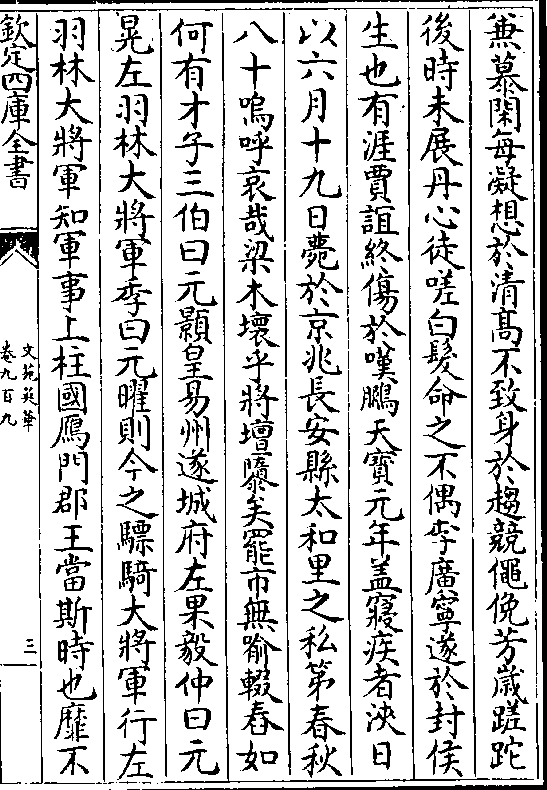 兼慕閑每凝想於清髙不致身於趨競僶俛芳嵗蹉跎
後時未展丹心徒嗟白髮命之不偶李廣寧遂於封侯
生也有涯賈誼終傷於嘆鵩天寳元年盖寢疾者浹日
以六月十九日薨於京兆長安縣太和里之私第春秋
八十嗚呼哀哉梁木壞乎將壇隳矣罷市無喻輟舂如
何有才子三伯曰元顥皇易州遂城府左果毅仲曰元
晃左羽林大將軍季曰元曜則今之驃騎大將軍行左
羽林大將軍知軍事上柱國鴈門郡王當斯時也靡不
欽定四庫全書
文苑英華
卷九百九
三